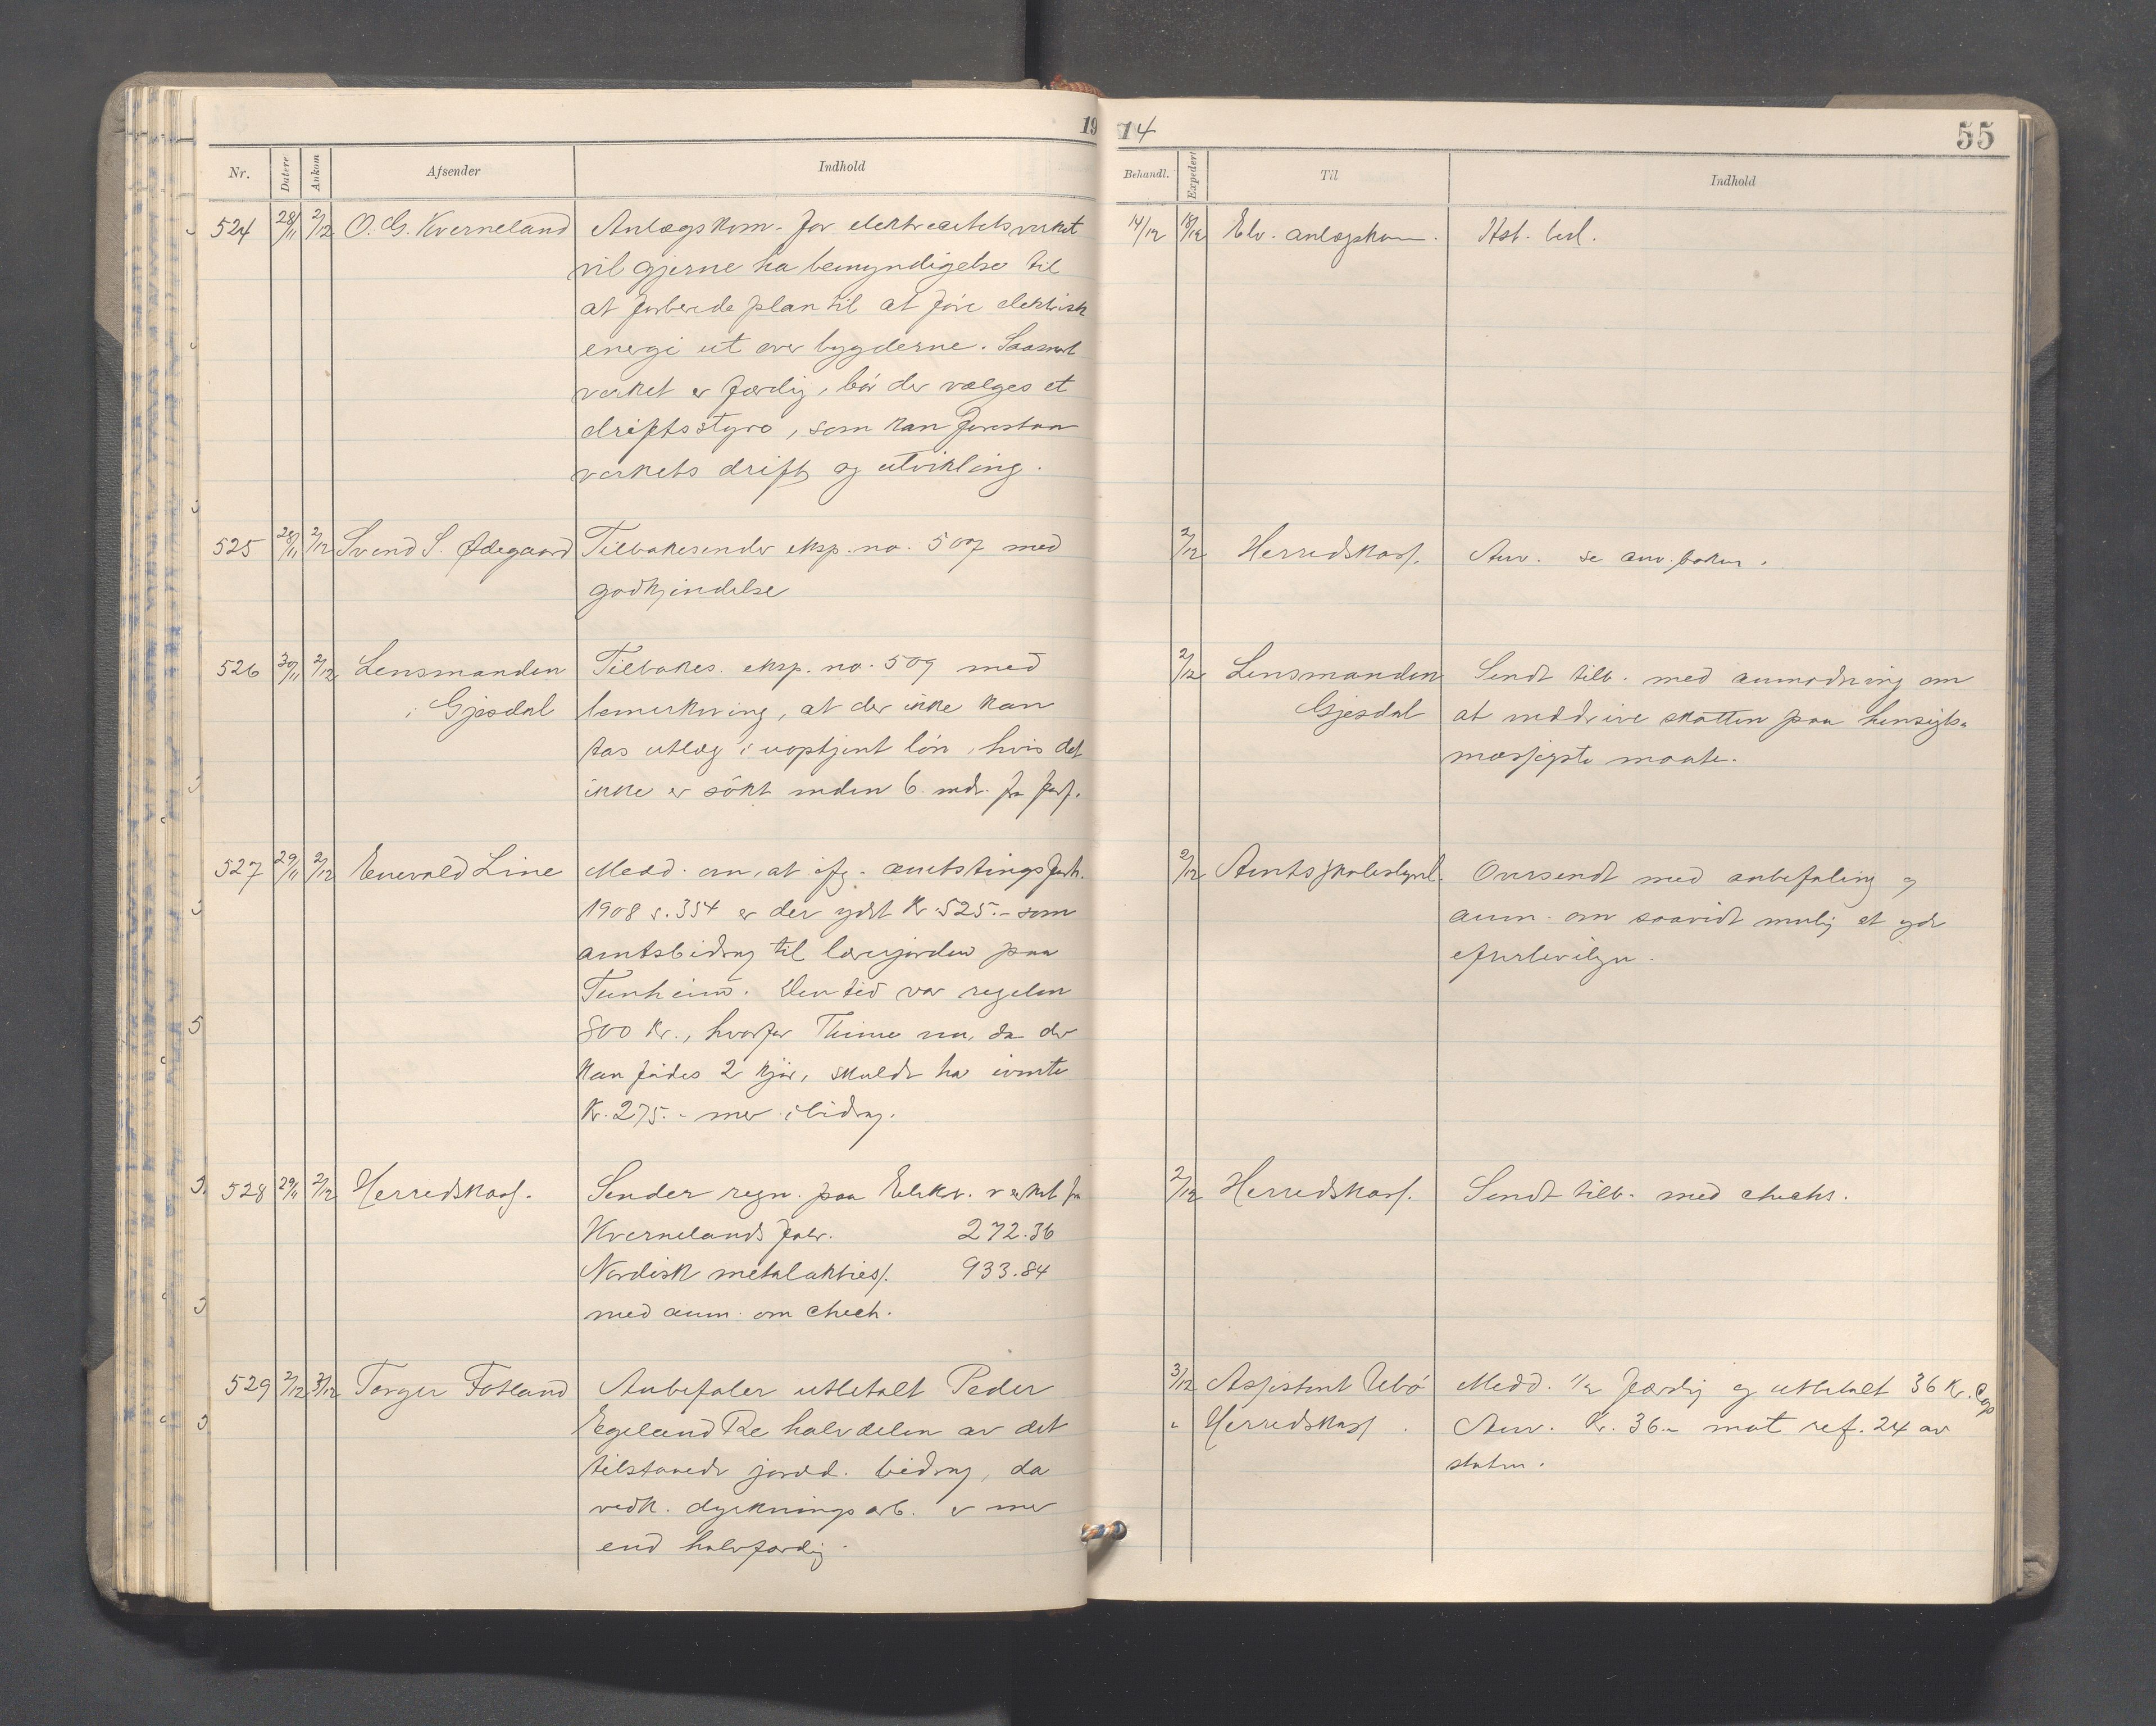 19 14 55
Nr. Datert Ankom Afsender Indhold Behandl. Expedert Til Indhold
524 28/11 2/12 O. G. Kverneland Anlægskom. for elektricitetsverket
vil gjerne ha bemyndigelse til
at forberede plan til at føre elektrisk
energi ut over bygderne. Saasnart
verket er færdig, bør der vælges et
driftsstyre, som kan forestaa
verkets drift og utvikling.
14/12 18/12 Elv. anlægskom. Hst. besl.
525 28/11 2/12 Svend S. Ødegaard Tilbakesender eksp. no. 507 med
godkjendelse
2/12 Herredskass. Anv. se anv. boken.
526 30/11 2/12 Lensmanden Tilbakes. eksp. no. 509 med
i Gjesdal bemerkning, at der ikke kan
tas utlæg i uoptjent løn, hvis det
ikke er søkt inden 6 mdr. fra forf.
2/12 Lensmanden Sendt tilb. med anmodning om
Gjesdal at inddrive skatten paa hensigts-
mæssigste maate.
527 29/11 2/12 Enevald Line Medd. om, at ifg. amtstingsforh.
1908 s. 354 er der ydet Kr. 525.- som
amtsbidrag til lærerjorden paa
Tunheim. Den tid var regelen
800 Kr., hvorfor Thime nu, da der
kan födes 2 kjør, skulde ha ivente
Kr. 275.- mer i bidrag.
2/12 Amtsskolestyret. Oversendt med anbefaling og
anm. om saavidt mulig at yde
efterbevilgn.
528 29/11 2/12 Herredskass. Sender regn. paa Elektr. verket fra
Kvernelands fabr. 272.36
Nordisk metalakties. 933.84
med anm. om check.
2/12 Herredskass. Sendt tilb. med checks.
529 2/12 3/12 Torger Fotland Anbefaler utbetalt Peder
Egeland Re halvdelen av det
tilstaaede jordd. bidrag, da
vedk. dyrkningsarb. er mer
end halvfærdig.
3/12 Assistent Uebø Medd. 1/2 færdig og utbetalt 36 Kr. Cop
" Herredskass. Anv. Kr. 36.- mot ref. 24 av
staten.